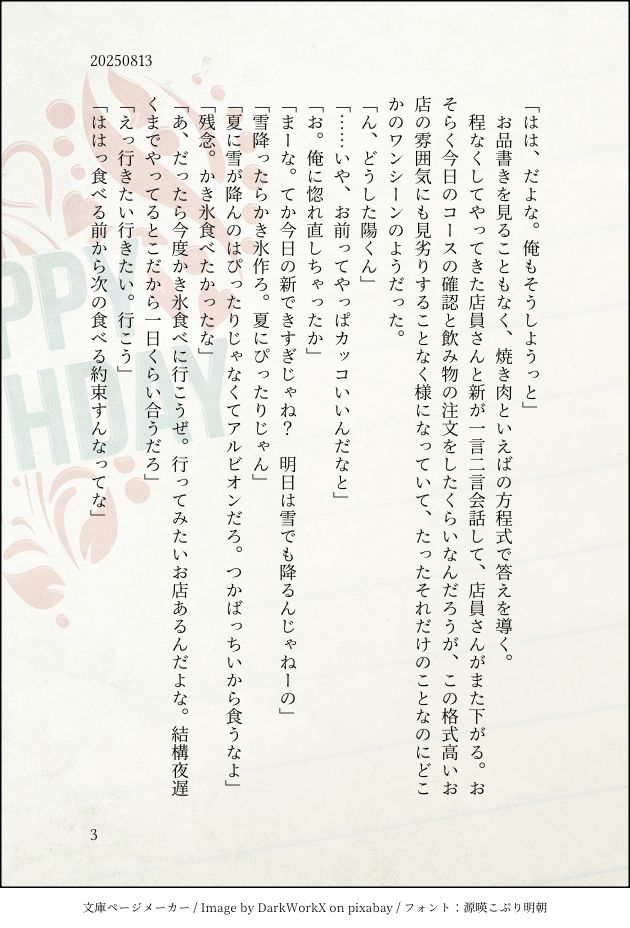 20250813
「はは、だよな。俺もそうしようっと」
　お品書きを見ることもなく、焼き肉といえばの方程式で答えを導く。
　程なくしてやってきた店員さんと新が一言二言会話して、店員さんがまた下がる。お
そらく今日のコースの確認と飲み物の注文をしたくらいなんだろうが、この格式高いお
店の雰囲気にも見劣りすることなく様になっていて、たったそれだけのことなのにどこ
かのワンシーンのようだった。
「ん、どうした陽くん」
「……いや、お前ってやっぱカッコいいんだなと」
「お。俺に惚れ直しちゃったか」
「まーな。てか今日の新できすぎじゃね？　明日は雪でも降るんじゃねーの」
「雪降ったらかき氷作ろ。夏にぴったりじゃん」
「夏に雪が降んのはぴったりじゃなくてアルビオンだろ。つかばっちいから食うなよ」
「残念。かき氷食べたかったな」
「あ、だったら今度かき氷食べに行こうぜ。行ってみたいお店あるんだよな。結構夜遅
くまでやってるとこだから一日くらい合うだろ」
「えっ行きたい行きたい。行こう」
「ははっ食べる前から次の食べる約束すんなってな」
3
HAPPY
BIRTHDAY
文庫ページメーカー / Image by DarkWorkX on pixabay / フォント：源暎こぶり明朝